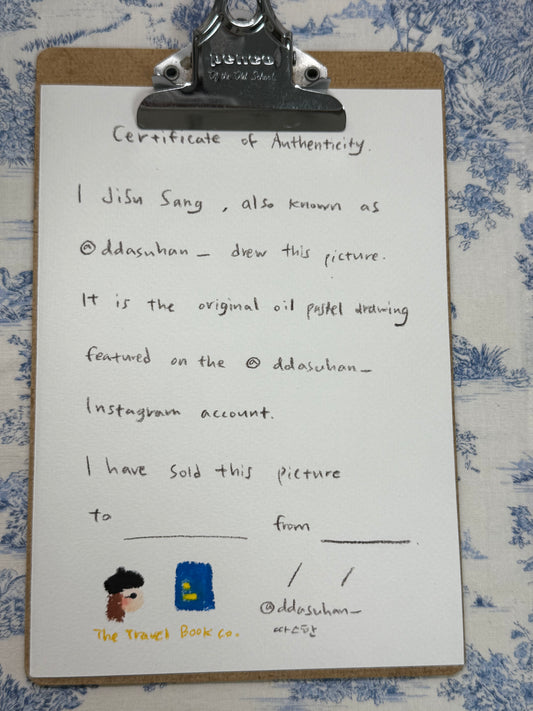 penco
Of the Old School
Certificate of Authenticity.
I JiSu Sang, also known as
@ddasuhan_ drew this picture.
It is the original oil pastel drawing
featured on the @ddasuhan_
Instagram account.
I have sold this picture
to ____________ from __________.
/ /
@ddasuhan_
따스한
The Travel Book Co.